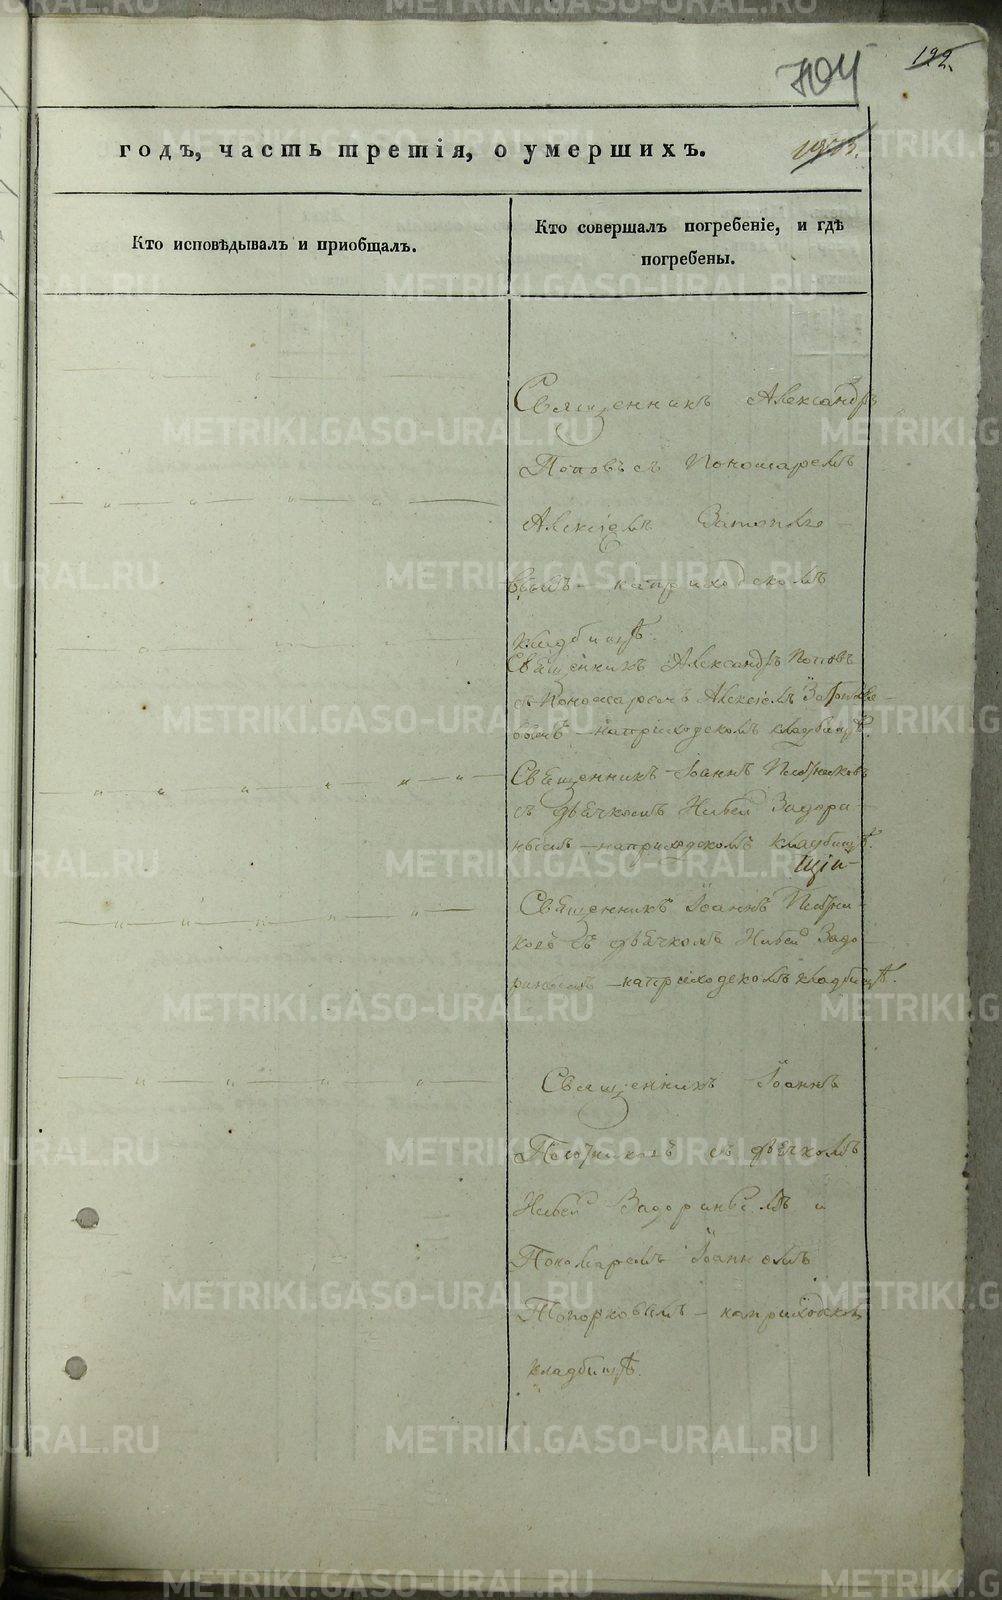 122.
704
годъ, часть третія, о умершихъ.
Кто исповѣдывалъ и приобщалъ.
Кто совершалъ погребеніе, и гдѣ
погребены.
Священникъ Александръ
Поповъ съ Пономаремъ
Алексіемъ
вымъ — на приходскомъ
кладбищѣ.
Священникъ Александръ Поповъ
съ Пономаремъ Алексіемъ
вымъ — на приходскомъ кладбищѣ.
Священникъ Іоаннъ
съ дьячкомъ Задори-
нымъ — на приходскомъ кладбищѣ.
Священникъ Іоаннъ
ковъ съ дьячкомъ Задо-
ринымъ — на приходскомъ кладбищѣ.
Священникъ Іоаннъ
съ дьячкомъ
Задоринымъ и
Пономаремъ Іоанномъ
Топорковымъ — на приходском
кладбищѣ.
METRIKI.GASO-URAL.RU